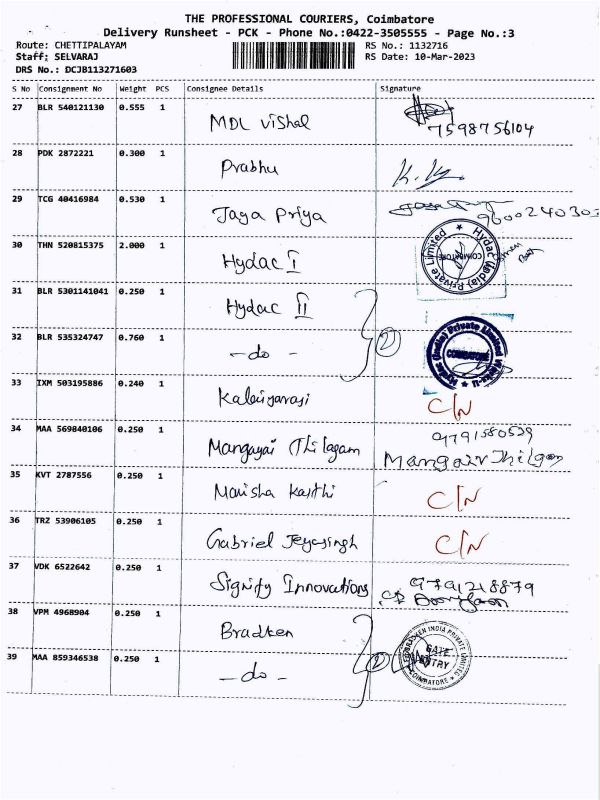 THE PROFESSIONAL COURIERS, Coimbatore
Delivery Runsheet - PCK - Phone No.:0422-3505555 - Page No.:3
Route: CHETTIPALAYAM RS No.: 1132716
Staff: SELVARAJ RS Date: 10-Mar-2023
DRS No.: DCJB113271603
S No Consignment No Weight PCS Consignee Details Signature
27 BLR 540121130 0.555 1 MDL Vishal
7598756104
28 PDK 2872221 0.300 1 Prabhu
29 TCG 40416984 0.530 1 Jaya Priya
30 THN 520815375 2.000 1 Hydac I
Hydac (India) Private Limited
COIMBATORE
31 BLR 5301141041 0.250 1 Hydac II
32 BLR 535324747 0.760 1 -do- 2
Hydac (India) Private Limited
COIMBATORE
33 IXM 503195886 0.240 1 Kalaiyarasi C/N
34 MAA 569840106 0.250 1 Mangayai Thilagam
35 KVT 2787556 0.250 1 Manisha Karthi C/N
36 TRZ 53906105 0.250 1 Gabriel Jeyasingh C/N
37 VDK 6522642 0.250 1 Signify Innovations 9791218879
38 VPM 4968904 0.250 1 Bradken
39 MAA 859346538 0.250 1 -do- 2
BRADKEN INDIA PRIVATE LIMITED
GATE
ENTRY
COIMBATORE